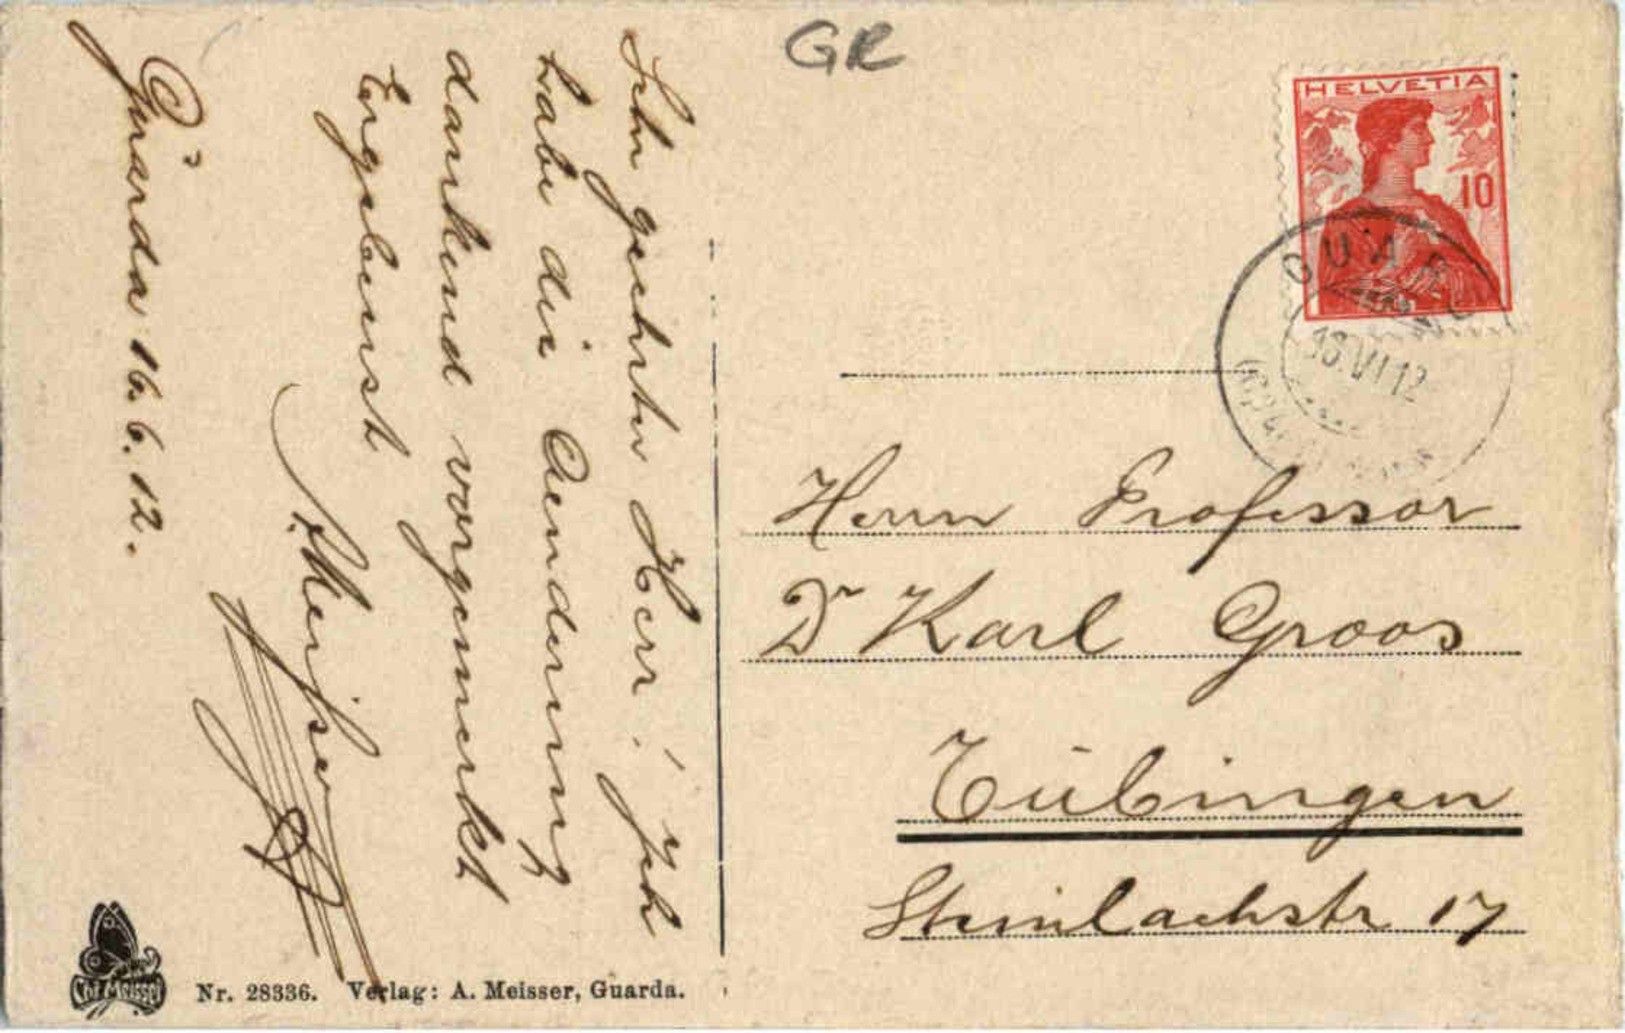 GR
HELVETIA
10
GUARDA
18 VI 12
Sehr geehrter Herr! Ich
habe die Aenderung
dankend vorgemerkt
Ergebenst
A. Meisser
Guarda 16. 6. 12.
Herrn Professor
Dr Karl Groos
Tübingen
Steinlachstr 17
Chr. Meisser
Nr. 28336. Verlag: A. Meisser, Guarda.